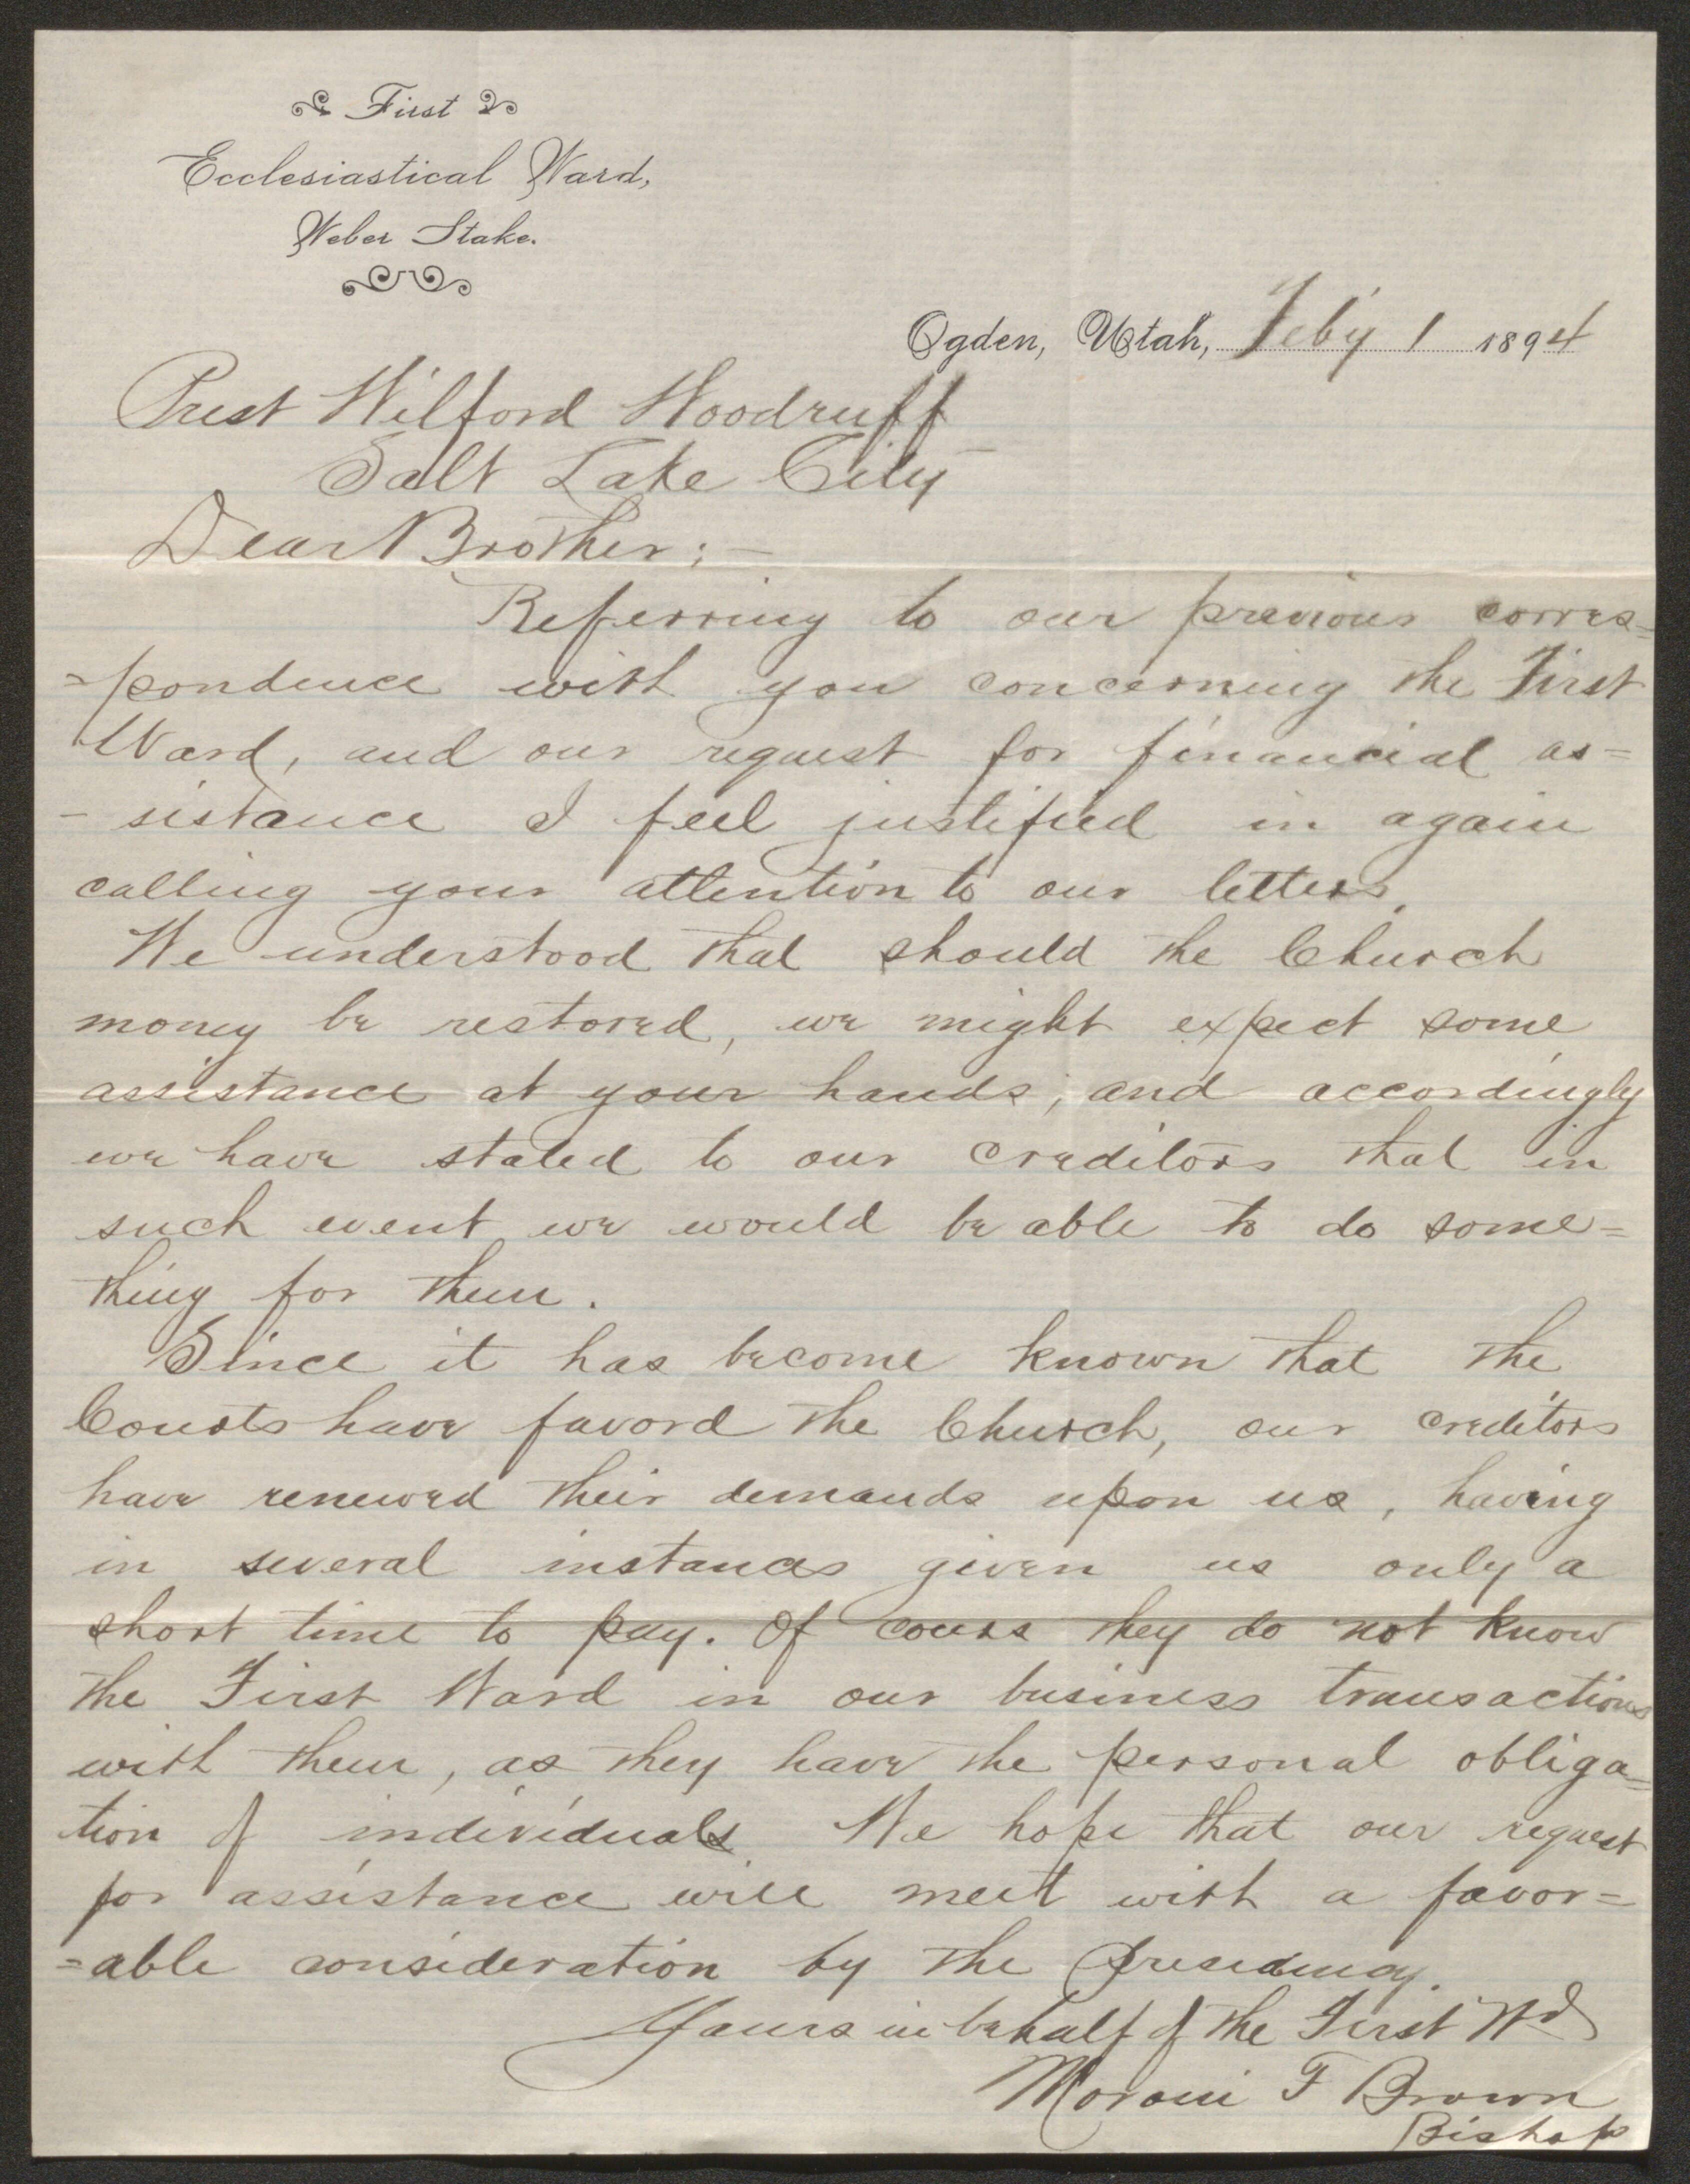 First
Ecclesiastical Ward,
Weber Stake.
Ogden, Utah, Feb'y 1 1894
Prest Wilford Woodruff
Salt Lake City
Dear Brother:—
Referring to our previous corres=
=pondence with you concerning the First
Ward, and our request for financial as=
- sistance I feel justified in again
calling your attention to our letters.
We understood that should the Church
money be restored, we might expect some
assistance at your hands; and accordingly
we have stated to our creditors that in
such event we would be able to do some=
thing for them.
Since it has become known that the
Courts have favord the Church, our creditors
have renewed their demands upon us, having
in several instances given us only a
short time to pay. Of cours they do not know
the First Ward in our business transactions
with them, as they have the personal obliga=
tion of individuals. We hope that our request
for assistance will meet with a favor=
=able consideration by the Presidency.
Yours in behalf of the First Wd
Moroni F Brown
Bishop